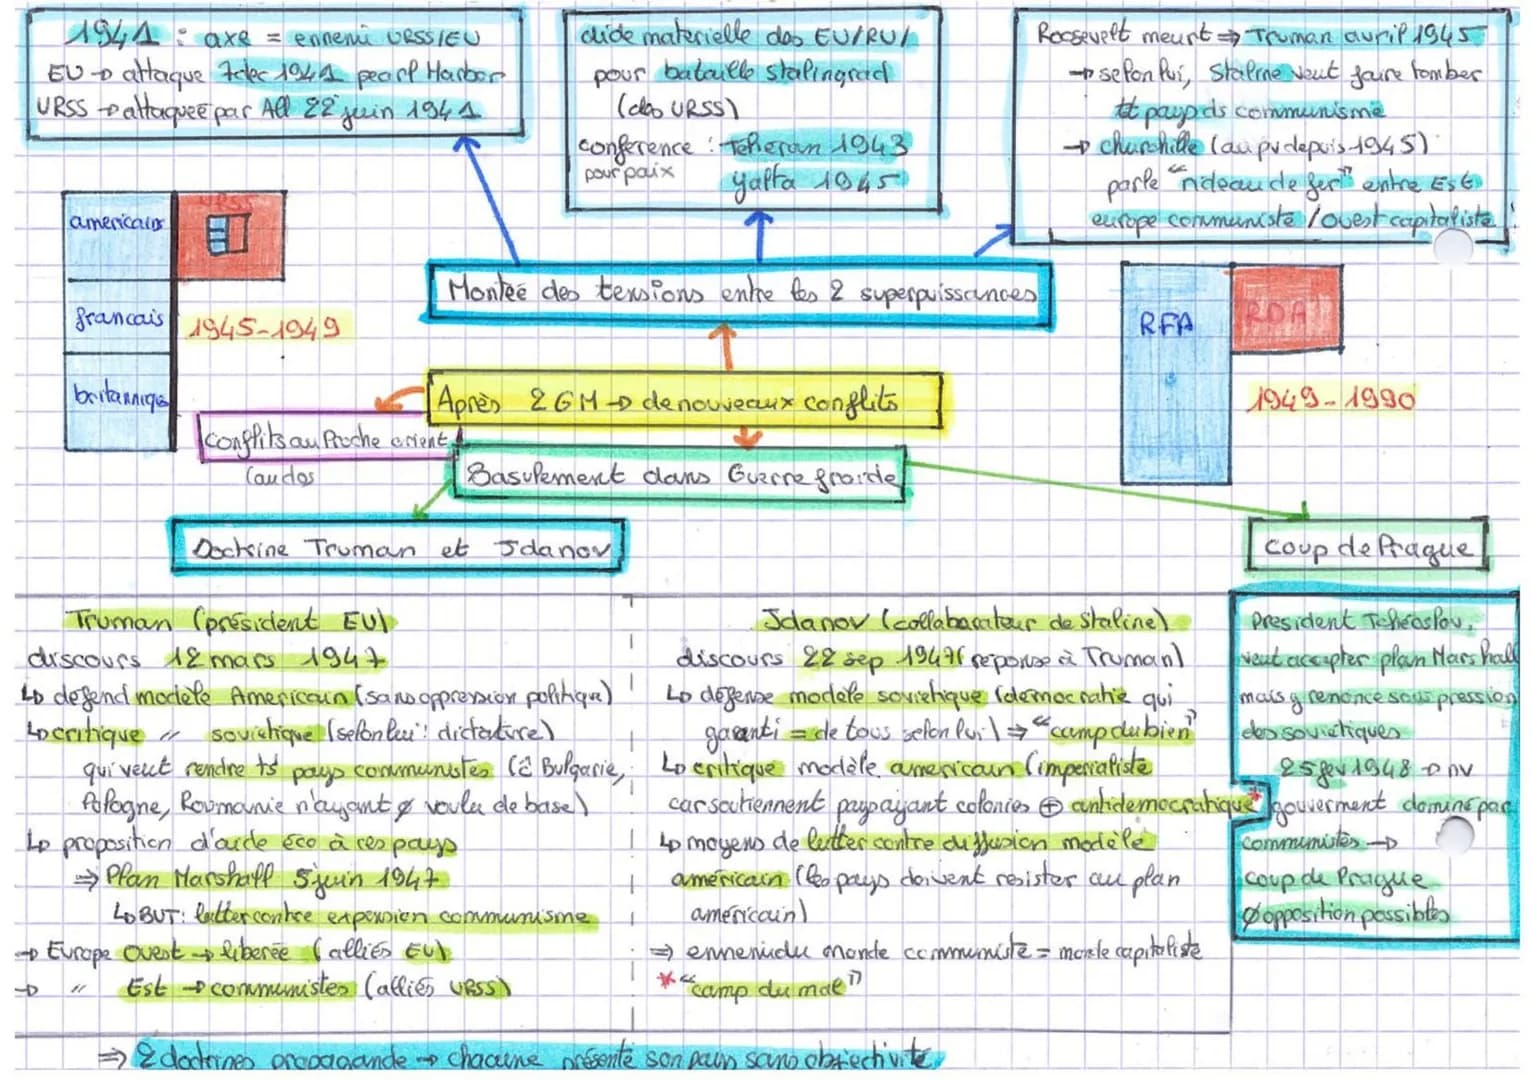 1941 : axe = ennemi URSS/EU
EU → attaque 7 dec 1941 pearl Harbor
URSS → attaqueé par All 22 juin 1941
aide materielle des EU/RU/
pour bataille Stalingrad
(ds URSS)
conference : Teheran 1943
pour paix
yalta 1945
Roosevelt meurt ⇒ Truman avril 1945
→ selon lui, Staline veut faire tomber
tt pays ds communisme
→ churchille (au pv depuis 1945)
parle "rideau de fer" entre Est
europe communiste / Ouest capitaliste !
americains
URSS
francais
1945-1949
britannique
Montée des tensions entre les 2 superpuissances
RFA
RDA
1949-1990
Après 2GM → de nouveaux conflits
Conflits au Proche orient
(au dos
Basulement dans Guerre froide
Doctrine Truman et Jdanov
Coup de Prague
Truman (président EU)
discours 12 mars 1947
↳ défend modèle Americain (sans oppression politique)
↳ critique " soviétique (selon lui : dictature)
qui veut rendre ts pays communistes (c̄ Bulgarie,
Pologne, Roumanie n'ayant ø voulu de base)
↳ proposition d'aide éco à ces pays
⇒ Plan Marshall 5 juin 1947
↳ BUT: lutter contre expension communisme
→ Europe Ouest → liberée (alliés EU)
→ " Est → communistes (alliés URSS)
Jdanov (collaborateur de Staline)
discours 22 sep 1947 (réponse à Truman)
↳ défense modèle soviétique (democratie qui
garanti = de tous selon lui) ⇒ "camp du bien"
↳ critique modèle americain (imperialiste
car soutiennent pays ayant colonies ⊕ antidemocratique*
↳ moyens de lutter contre diffusion modèle
américain (les pays doivent resister au plan
américain)
⇒ ennemi du monde communiste = monde capitaliste
* "camp du mal"
President Tchécoslov.
veut accepter plan Marshall
mais y renonce sous pression
des soviétiques
25 fev 1948 → nv
gouverment dominé par
communistes →
coup de Prague
Ø opposition possibles
⇒ 2 doctrines propagande → chacune présente son pays sans objectivité